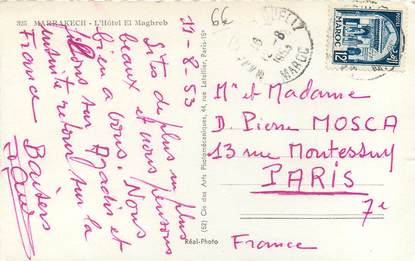 325 MARRAKECH - L'Hôtel El Maghreb
11-8-53
Sites de plus en plus
beaux et nous pensons
bien à vous. Nous
filons sur Agadir et
ensuite retour sur la
France. Baisers
(52) Cie des Arts Photomécaniques, 44, rue Letellier, Paris-15e
Réal-Photo
66
MAROC
MAROC
12
Mr et Madame
D. Pierre MOSCA
13 rue Montessuy
PARIS
7e
France